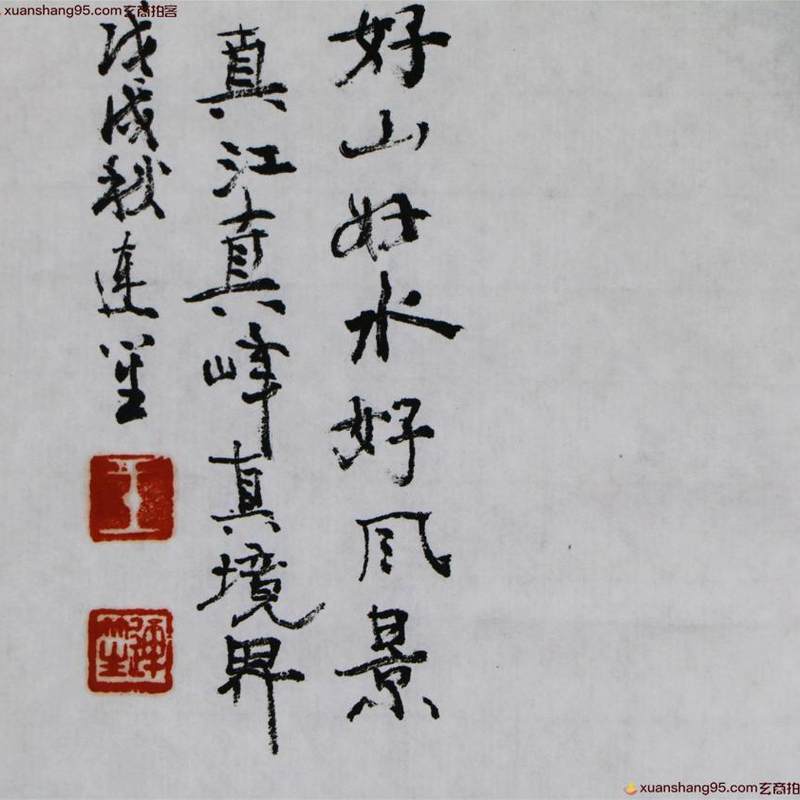 xuanshang95.com玄商拍客
好山好水好风景
真江真峰真境界
戊戌秋连笙
王
连笙
xuanshang95.com玄商拍